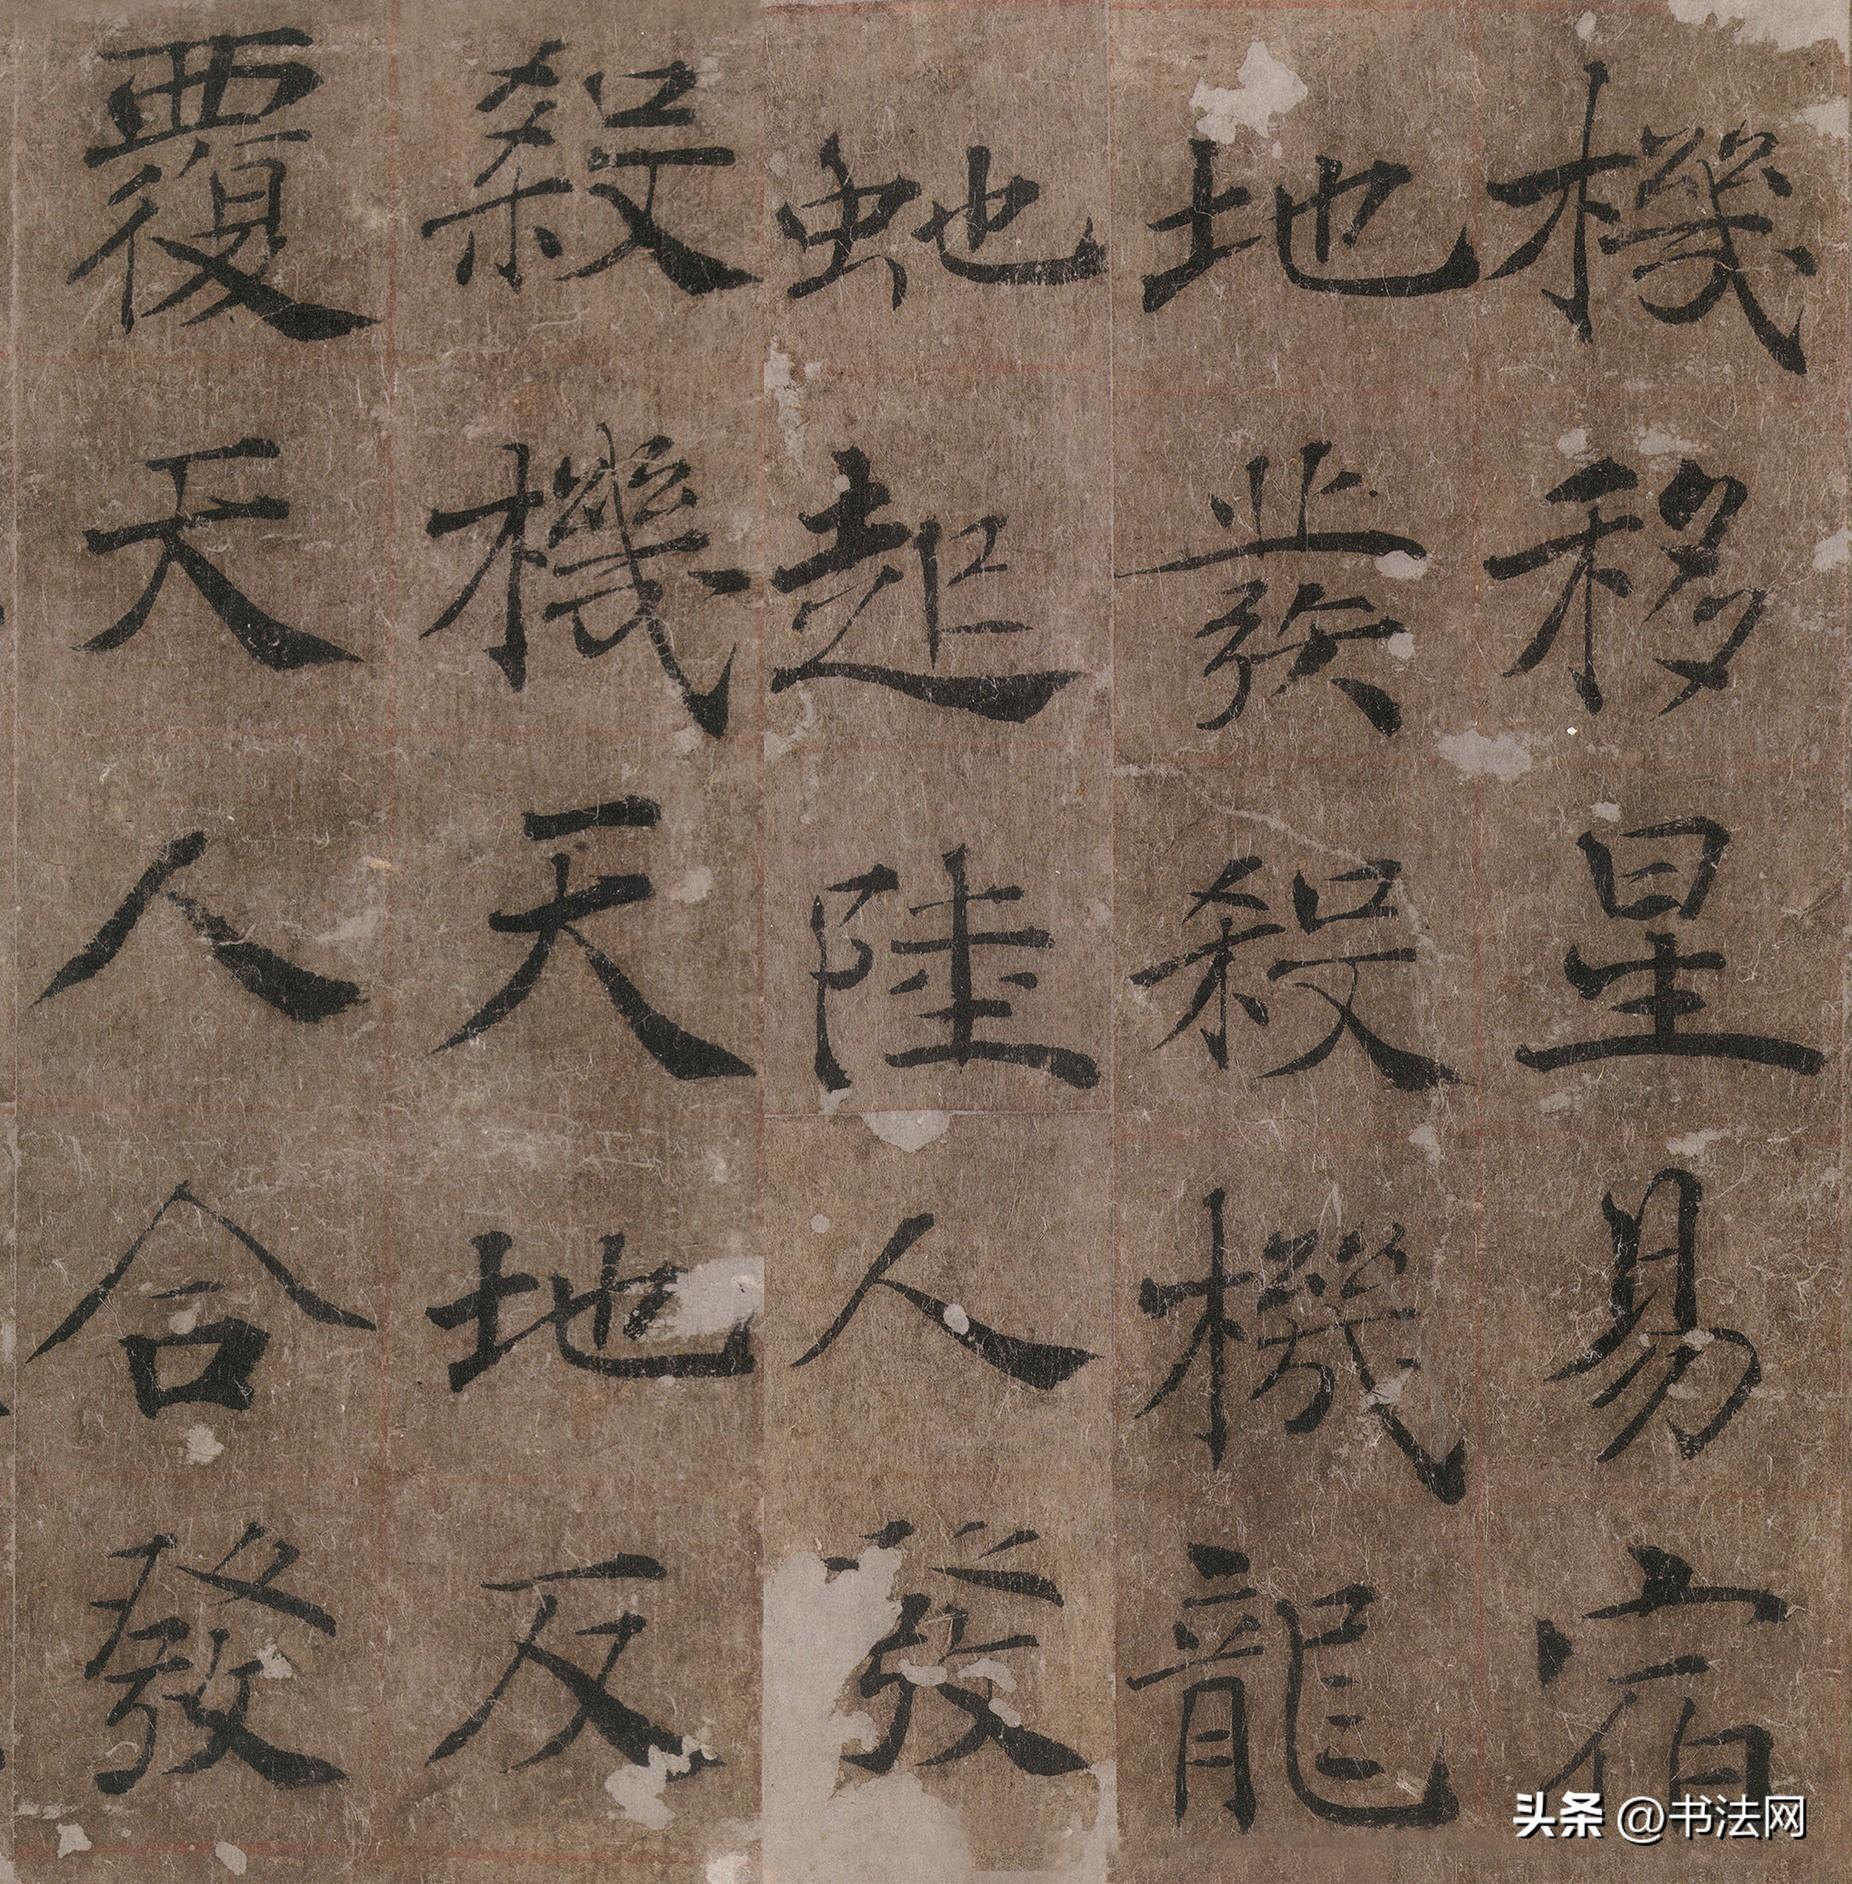 機移星易宿
地發殺機龍
虵起陸人發
殺機天地反
覆天人合發
头条 @书法网